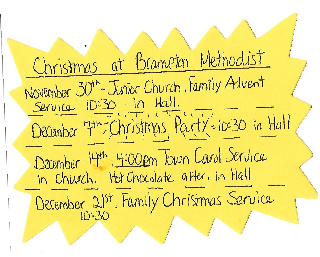 Christmas at Brampton Methodist
November 30th - Junior Church. Family Advent
Service 10:30 - in Hall.
December 7th - Christmas Party - 10:30 in Hall
December 14th. 4:00pm Town Carol Service
in Church. Hot Chocolate after. in Hall
December 21st. Family Christmas Service
10:30